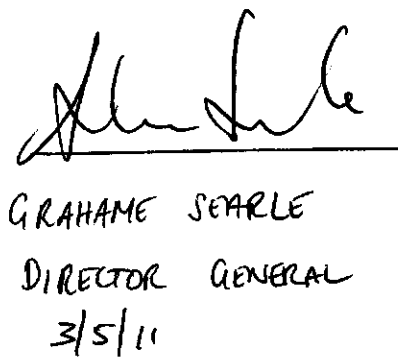 GRAHAME SEARLE
DIRECTOR GENERAL
3/5/11